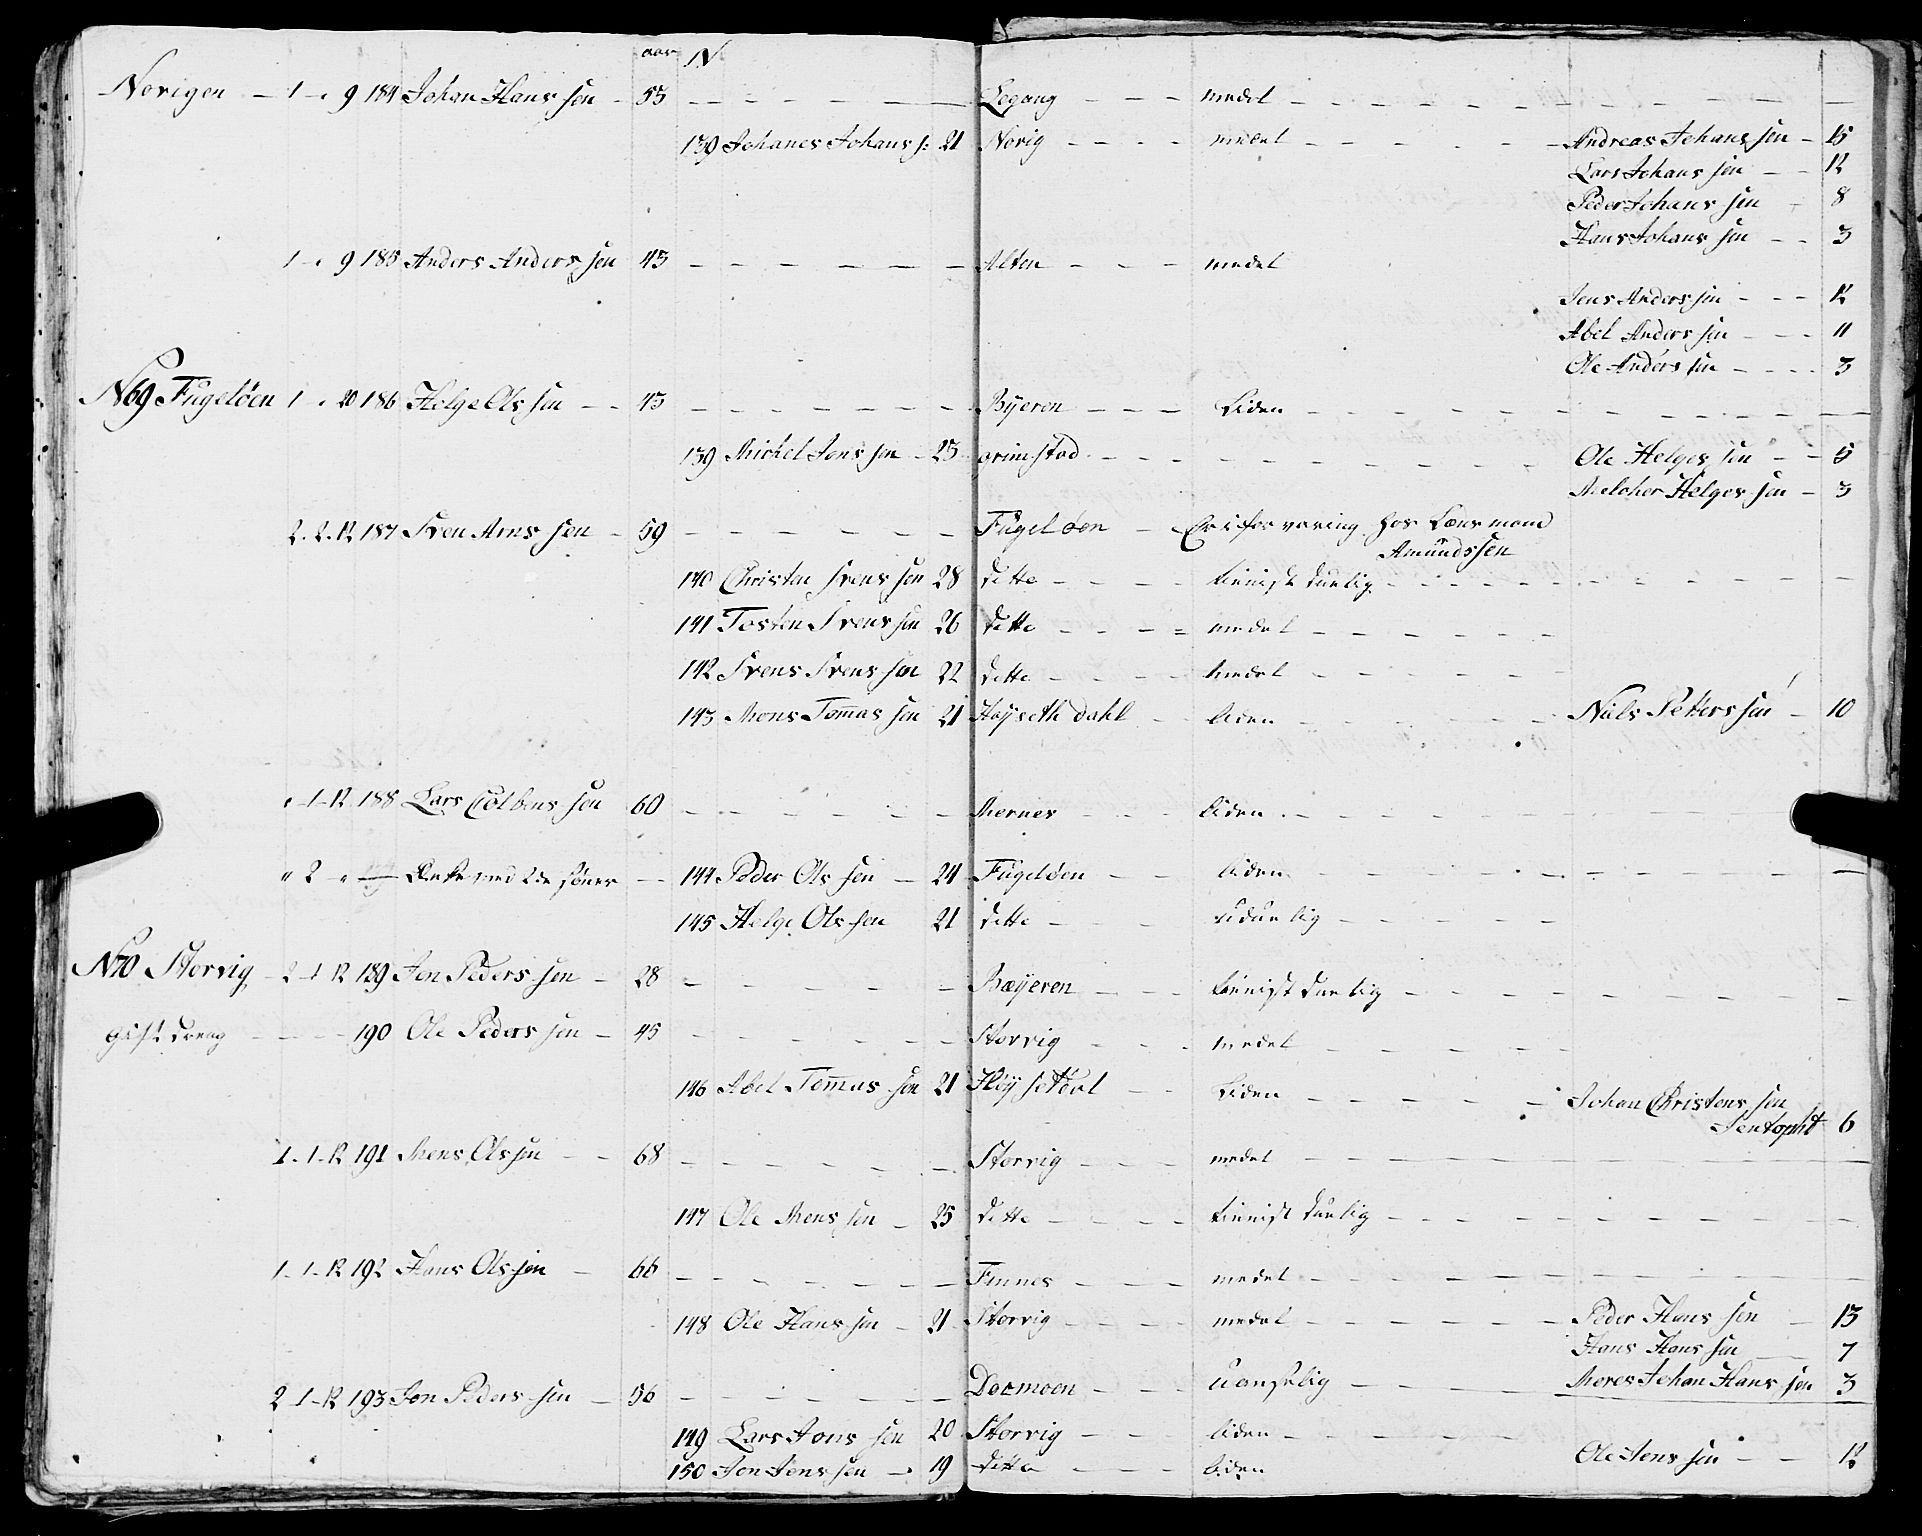 aar N
Norigen 1 9 184 Johan Hans sen 55 Legang medel
139 Johanes Johans s: 21 Norig medel Andreas Johans sen 15
Lars Johans sen 12
Peder Johans sen 8
Hans Johans sen 3
1 9 185 Anders Anders sen 43 Alten medel
Jens Anders sen 12
Abel Anders sen 11
Ole Anders sen 3
N69 Fugelöen 1 20 186 Helge Ols sen 43 Byeren Liden
139 Mickel Jens sen 23 grimstad Ole Helges sen 5
Melcher Helges sen 3
2. 2. 12 187 Sven Arns sen 59 Fugelöen Er i forvaring hos Lens mand
Amundssen
140 Christen Svens sen 28 ditto tienist duelig
141 Tosten Svens sen 26 ditto medel
142 Svens Svens sen 22 ditto medel
143 Mons Tomas sen 21 Høyseth dahl liden Niels Petters sen 10
1 12 188 Lars Colbens sen 60 Mernes liden
2 Enke med 2de sönner 144 Peder Ols sen 24 Fugelöen liden
145 Helge Ols sen 21 ditto uduelig
N70 Storvig 2 1 12 189 Jon Peders sen 28 Bæyeren tienist duelig
gift dreng 190 Ole Peders sen 45 Storvig medel
146 Abel Tomas sen 21 Høy setdal Liden Johan Christens sen
6
1. 1. 12 191 Mons Ols sen 68 Storvig medel
147 Ole Mons sen 25 ditto tienist duelig
1. 1. 12 192 Hans Ols sen 66 Finnes medel
148 Ole Hans sen 21 Storvig medel Peder Hans sen 13
Hans Hans sen 7
2 1. 12 193 Jon Peders sen 56 Docmoen uanselig Mores Johan Hans sen 3
149 Lars Jons sen 20 Storvig liden
150 Jon Jons sen 19 ditto liden Ole Jens sen 12